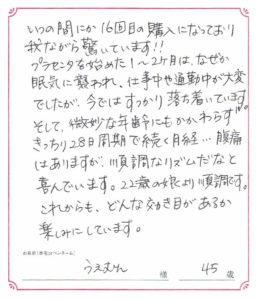 いつの間にか16回目の購入になっており
我ながら驚いています!!
プラセンタを始めた1～2ヶ月は、なぜか
眠気に襲われ、仕事中や通勤中が大変
でしたが、今ではすっかり落ち着いています。
そして、微妙な年齢にもかかわらず
きっちり28日周期で続く月経…腹痛
はありますが、順調なリズムだなと
喜んでいます。22歳の娘より順調です。
これからも、どんな効き目があるか
楽しみにしています。
お名前(本名orペンネーム)
うえむん 様 45 歳